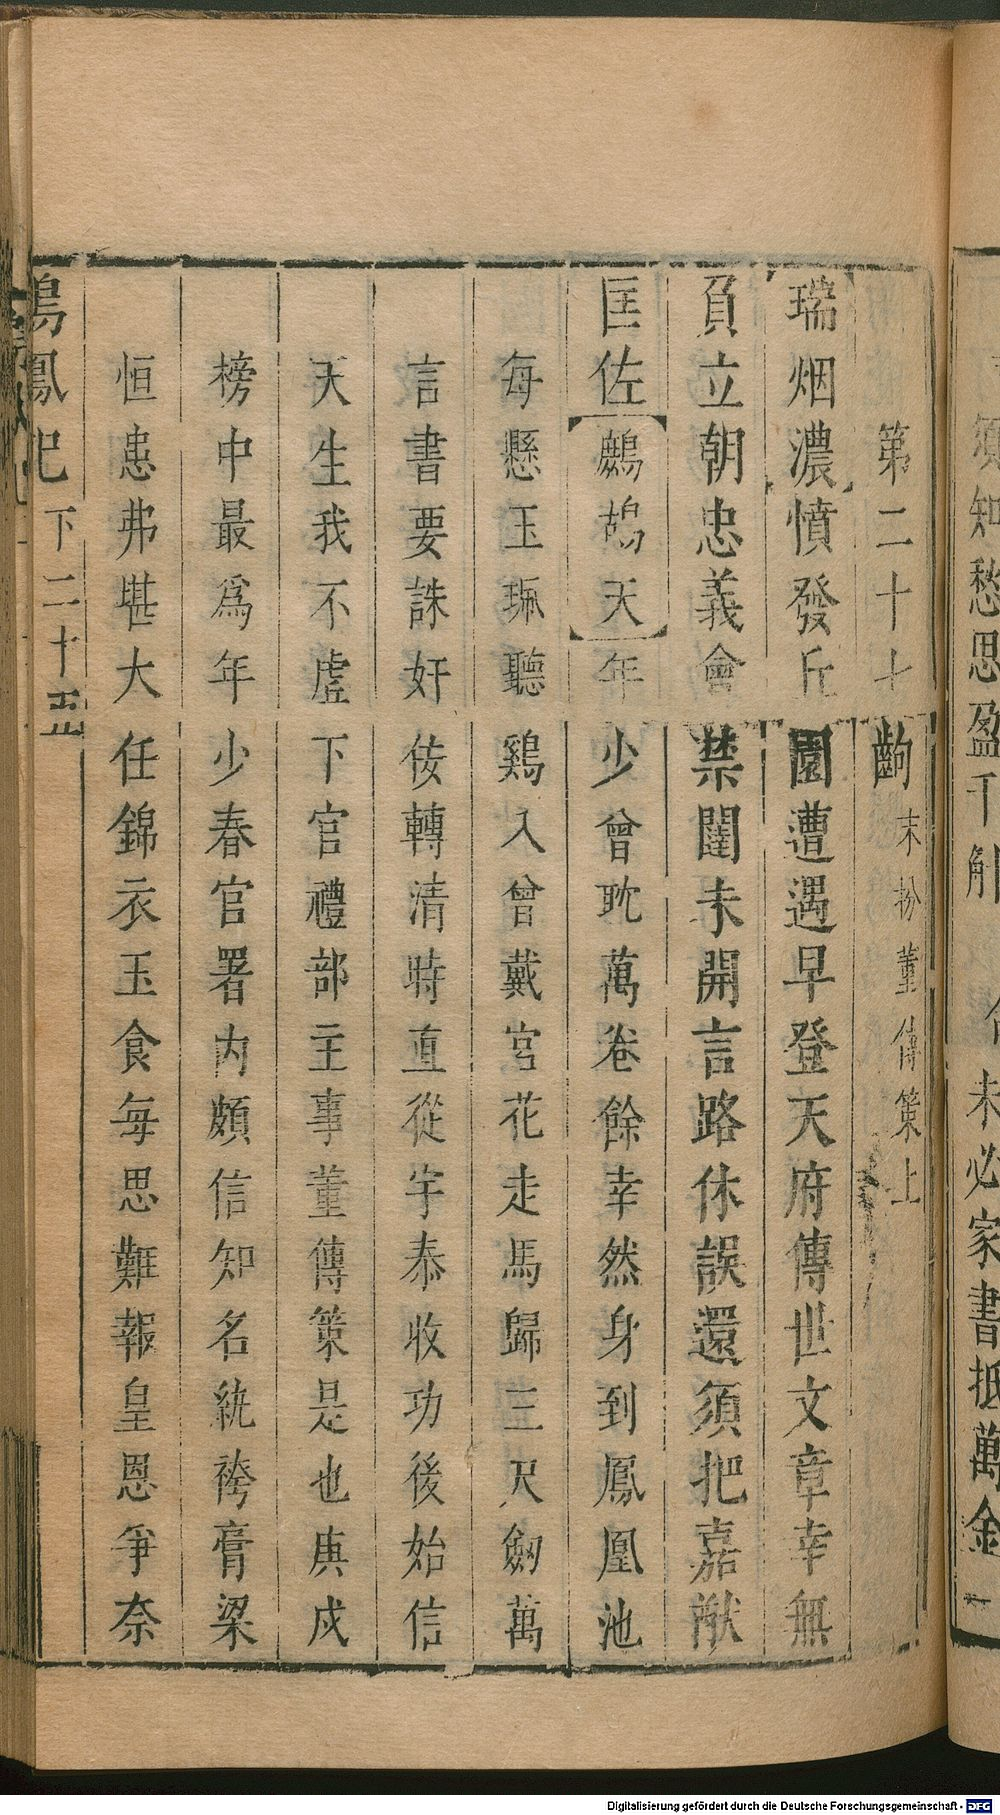 須知愁思盈千斛 未必家書抵萬金
第二十七齣 末扮董傳策上
瑞烟濃憤發丘園遭遇早登天府傳世文章幸無
負立朝忠義會禁闥未開言路休誤還須把嘉猷
匡佐【鷓鴣天】年少曾耽萬卷餘幸然身到鳳凰池
每懸玉珮聽雞入曾戴宮花走馬歸三尺劍萬
言書要誅奸佞轉清時直從宇泰收功後始信
天生我不虛下官禮部主事董傳策是也庚戌
榜中最為年少春官署內頗信知名紈袴膏粱
恒恚弗堪大任錦衣玉食每思難報皇恩爭奈
鳴鳳記 下二十五
Digitalisierung gefördert durch die Deutsche Forschungsgemeinschaft - DFG